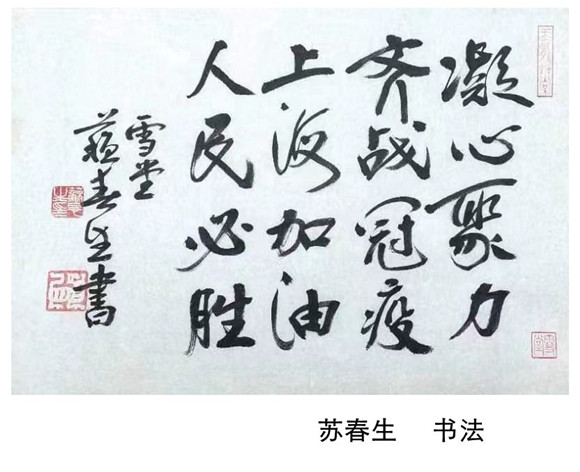 凝心聚力
齐战冠疫
上海加油
人民必胜
雪堂
蘓春生書
苏春生 书法